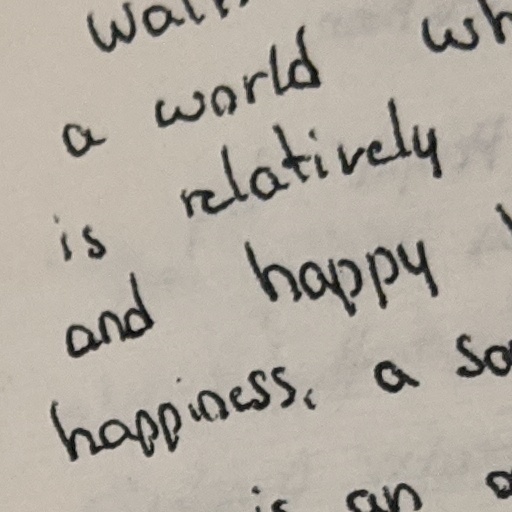 a world
is relatively
and happy
happiness. a
is an